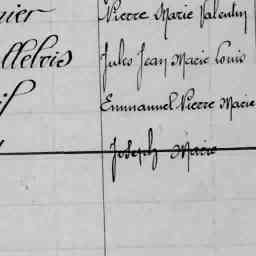 nier Pierre Marie Valentin
Jules Jean Marie Louis
Emmanuel Pierre Marie
Joseph Marie